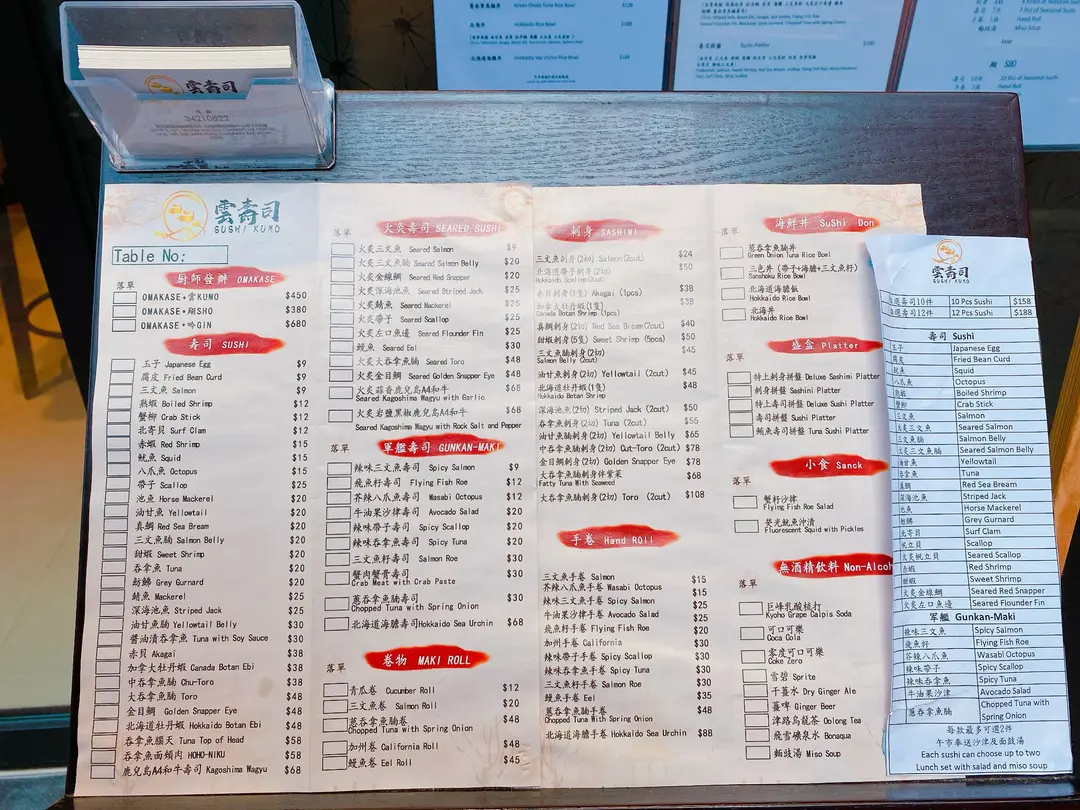 Green Onion Tuna Rice Bowl
$138
北海丼
Hokkaido Rice Bowl
$188
北海道海膽丼
Hokkaido Sea Urchin Rice Bowl
$188
壽司拼盤
Sushi Platter
$180
7 Pcs of Seasonal Sushi
Hand Roll
Miso Soup
翔 $80
壽司 10件
10 Pcs of Seasonal Sushi
Hand Roll
雲壽司
34210822
雲壽司
SUSHI KUMO
Table No:
落單
廚師發辦 OMAKASE
OMAKASE•雲KUMO $450
OMAKASE•翔SHO $380
OMAKASE•吟GIN $680
壽司 SUSHI
玉子 Japanese Egg $9
腐皮 Fried Bean Curd $9
三文魚 Salmon $9
熟蝦 Boiled Shrimp $12
蟹柳 Crab Stick $12
北寄貝 Surf Clam $12
赤蝦 Red Shrimp $15
魷魚 Squid $15
八爪魚 Octopus $15
帶子 Scallop $25
池魚 Horse Mackerel $20
油甘魚 Yellowtail $20
真鯛 Red Sea Bream $20
三文魚腩 Salmon Belly $20
甜蝦 Sweet Shrimp $20
吞拿魚 Tuna $20
魴鮄 Grey Gurnard $20
鯖魚 Mackerel $25
深海池魚 Striped Jack $25
油甘魚腩 Yellowtail Belly $30
醬油漬吞拿魚 Tuna with Soy Sauce $30
赤貝 Akagai $38
加拿大牡丹蝦 Canada Botan Ebi $38
中吞拿魚腩 Chu-Toro $38
大吞拿魚腩 Toro $48
金目鯛 Golden Snapper Eye $48
北海道牡丹蝦 Hokkaido Botan Ebi $48
吞拿魚腦天 Tuna Top of Head $58
吞拿魚面頰肉 HOHO-NIKU $58
鹿兒島A4和牛壽司 Kagoshima Wagyu $68
落單
火炙壽司 SEARED SUSHI
火炙三文魚 Seared Salmon $9
火炙三文魚腩 Seared Salmon Belly $20
火炙金線鯛 Seared Red Snapper $20
火炙深海池魚 Seared Striped Jack $25
火炙鯖魚 Seared Mackerel $25
火炙帶子 Seared Scallop $25
火炙左口魚邊 Seared Flounder Fin $25
鰻魚 Seared Eel $30
火炙大吞拿魚腩 Seared Toro $48
火炙金目鯛 Seared Golden Snapper Eye $48
火炙蒜香鹿兒島A4和牛 $68
Seared Kagoshima Wagyu with Garlic
火炙岩鹽黑椒鹿兒島A4和牛 $68
Seared Kagoshima Wagyu with Rock Salt and Pepper
落單
軍艦壽司 GUNKAN-MAKI
辣味三文魚壽司 Spicy Salmon $9
飛魚籽壽司 Flying Fish Roe $12
芥辣八爪魚壽司 Wasabi Octopus $12
牛油果沙律壽司 Avocado Salad $20
辣味帶子壽司 Spicy Scallop $20
辣味吞拿魚壽司 Spicy Tuna $20
三文魚籽壽司 Salmon Roe $30
蟹肉蟹膏壽司 $30
Crab Meat with Crab Paste
蔥吞拿魚腩壽司 $30
Chopped Tuna with Spring Onion
北海道海膽壽司Hokkaido Sea Urchin $68
落單
卷物 MAKI ROLL
青瓜卷 Cucumber Roll $12
三文魚卷 Salmon Roll $20
蔥吞拿魚腩卷 $48
Chopped Tuna with Spring Onion
加州卷 California Roll $48
鰻魚卷 Eel Roll $45
刺身 SASHIMI
三文魚刺身(2切) Salmon(2cut) $24
北海道帶子刺身(2切) $50
Hokkaido Scallop(2cut)
赤貝刺身(1隻) Akagai (1pcs) $38
加拿大牡丹蝦(1隻) $38
Canada Botan Shrimp (1pcs)
真鯛刺身(2切) Red Sea Bream(2cut) $40
甜蝦刺身(5隻) Sweet Shrimp (5pcs) $50
三文魚腩刺身(2切) $45
Salmon Belly (2cut)
油甘魚刺身(2切) Yellowtail (2cut) $45
北海道牡丹蝦(1隻) $48
Hokkaido Botan Shrimp
深海池魚(2切) Striped Jack (2cut) $50
吞拿魚刺身(2切) Tuna (2cut) $55
油甘魚腩刺身(2切) Yellowtail Belly $65
中吞拿魚腩刺身(2切) Cut-Toro (2cut) $78
金目鯛刺身(2切) Golden Snapper Eye $78
大吞拿魚腩刺身伴紫菜 $68
Fatty Tuna With Seaweed
大吞拿魚腩刺身(2切) Toro (2cut) $108
手卷 Hand ROLL
三文魚手卷 Salmon $15
芥辣八爪魚手卷 Wasabi Octopus $15
辣味三文魚手卷 Spicy Salmon $25
牛油果沙律手卷 Avocado Salad $25
飛魚籽手卷 Flying Fish Roe $20
加州手卷 California $30
辣味帶子手卷 Spicy Scallop $30
辣味吞拿魚手卷 Spicy Tuna $30
三文魚籽手卷 Salmon Roe $30
鰻魚手卷 Eel $35
蔥吞拿魚腩手卷 $48
Chopped Tuna With Spring Onion
北海道海膽手卷 Hokkaido Sea Urchin $88
落單
海鮮丼 SuShi Don
蔥吞拿魚腩丼
Green Onion Tuna Rice Bowl
三色丼 (帶子+海膽+三文魚籽)
Sanshoku Rice Bowl
北海道海膽飯
Hokkaido Rice Bowl
北海丼
Hokkaido Rice Bowl
落單
盛盒 Platter
特上刺身拼盤 Deluxe Sashimi Platter
刺身拼盤 Sashimi Platter
特上壽司拼盤 Deluxe Sushi Platter
壽司拼盤 Sushi Platter
鮪魚壽司拼盤 Tuna Sushi Platter
落單
小食 Sanck
蟹籽沙律
Flying Fish Roe Salad
熒光魷魚沖漬
Fluorescent Squid with Pickles
落單
無酒精飲料 Non-Alcoh
巨峰乳酸梳打
Kyoho Grape Calpis Soda
可口可樂
Coca Cola
零度可口可樂
Coke Zero
雪碧 Sprite
干薑水 Dry Ginger Ale
薑啤 Ginger Beer
津路烏龍茶 Oolong Tea
飛雪礦泉水 Bonaqua
麵豉湯 Miso Soup
雲壽司
SUSHI KUMO
選壽司10件 10 Pcs Sushi $158
選壽司12件 12 Pcs Sushi $188
壽司 Sushi
玉子 Japanese Egg
腐皮 Fried Bean Curd
魷魚 Squid
八爪魚 Octopus
熟蝦 Boiled Shrimp
蟹柳 Crab Stick
三文魚 Salmon
火炙三文魚 Seared Salmon
三文魚腩 Salmon Belly
火炙三文魚腩 Seared Salmon Belly
油甘魚 Yellowtail
吞拿魚 Tuna
真鯛 Red Sea Bream
深海池魚 Striped Jack
池魚 Horse Mackerel
魴鮄 Grey Gurnard
北寄貝 Surf Clam
帆立貝 Scallop
火炙帆立貝 Seared Scallop
赤蝦 Red Shrimp
甜蝦 Sweet Shrimp
火炙金線鯛 Seared Red Snapper
火炙左口魚邊 Seared Flounder Fin
軍艦 Gunkan-Maki
辣味三文魚 Spicy Salmon
飛魚籽 Flying Fish Roe
芥辣八爪魚 Wasabi Octopus
辣味帶子 Spicy Scallop
辣味吞拿魚 Spicy Tuna
牛油果沙津 Avocado Salad
蔥吞拿魚腩 Chopped Tuna with Spring Onion
每款最多可選2件
午市奉送沙津及麵豉湯
Each sushi can choose up to two
Lunch set with salad and miso soup